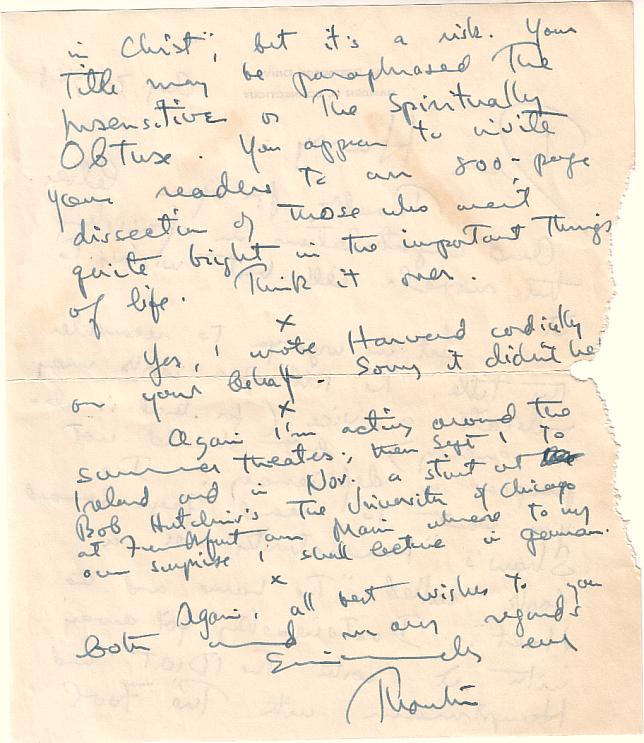 in Christ", but it's a risk. Your
Title may be paraphrased The
Insensitive or The Spiritually
Obtuse. You appear to invite
your readers to an 800-page
dissection of Those who aren't
quite bright in the important Things
of life. Think it over.
x
Yes, I wrote Harvard cordially
on your behalf. Sorry it didn't
x
Again I'm acting around the
summer theatres; then Sept 1 to
Ireland and in Nov. a stint at
Bob Hutchins's The University of Chicago
at Frankfurt am Main where to my
own surprise I shall lecture in german.
x
Again, all best wishes to you
both and many regards
Sincerely ever
Thornton